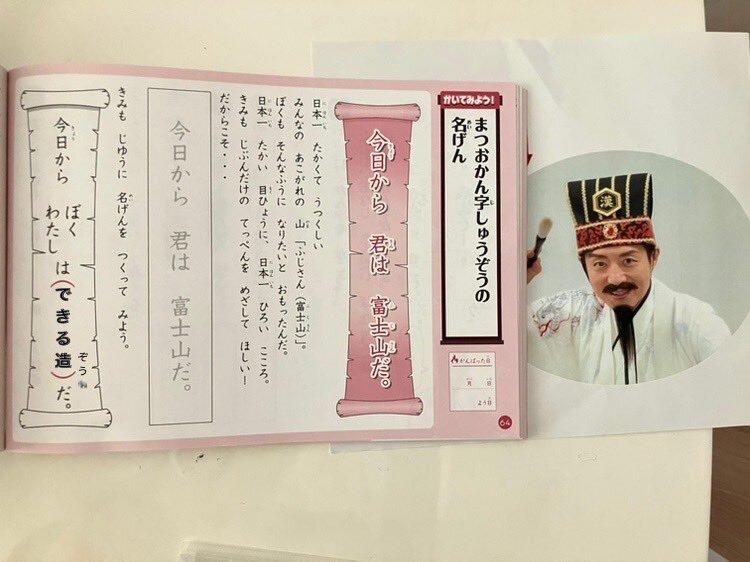 かいてみよう!
まつおかん字しゅうぞうの
名げん
がんばった日
月 日
よう日
今日から 君は 富士山だ。
日本一 たかくて うつくしい
みんなの あこがれの 山「ふじさん(富士山)」。
ぼくも そんなふうに なりたいと おもったんだ。
日本一 たかい 目ひょうに、日本一 ひろい こころ。
きみも じぶんだけの てっぺんを めざして ほしい!
だからこそ・・・
今日から 君は 富士山だ。
きみも じゆうに 名げんを つくって みよう。
今日から ぼく わたし は(できる造)だ。
64
漢